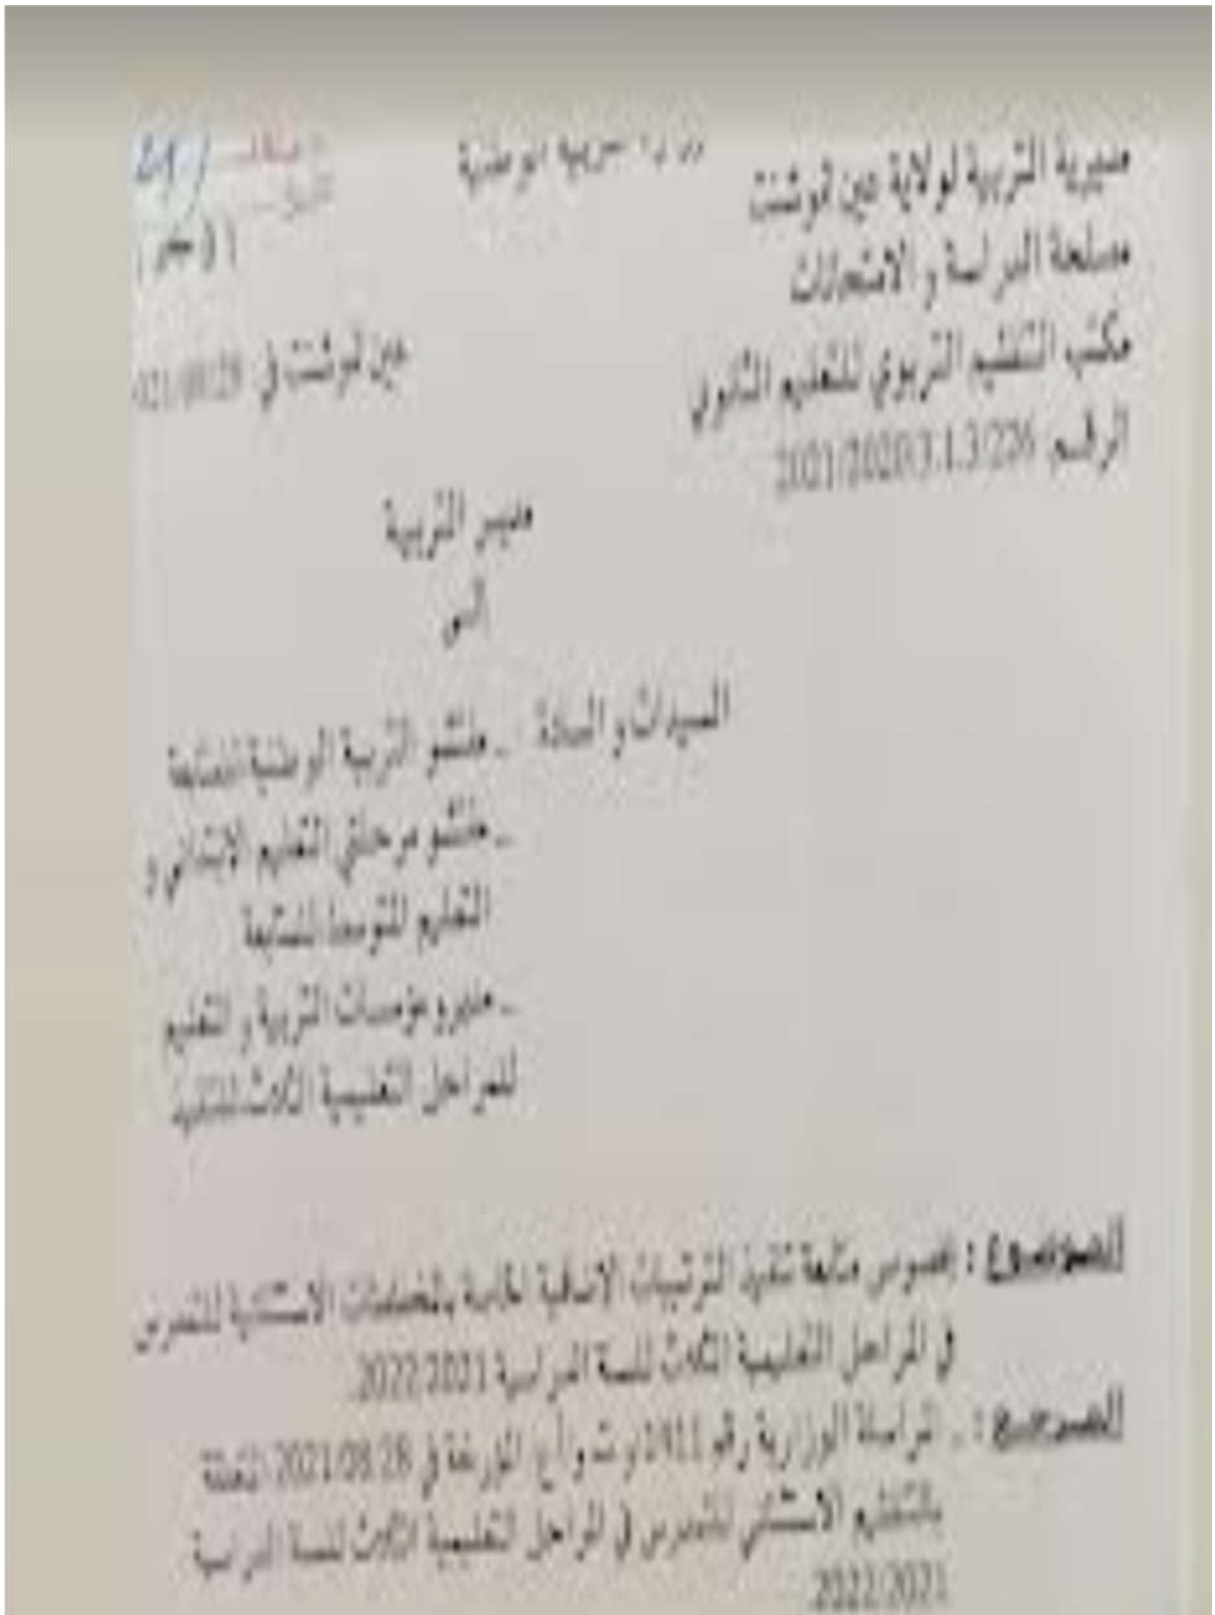 وزارة التربية الوطنية
مديرية التربية لولاية عين تموشنت
مصلحة الدراسة و الامتحانات
مكتب التنظيم التربوي للتعليم الثانوي
الرقم: 2021/2020/3.1.3/226
عين تموشنت في
مدير التربية
إلى
السيدات و السادة - مفتشو التربية الوطنية
- مفتشو مرحلتي التعليم الابتدائي و
التعليم المتوسط
- مديرو مؤسسات التربية و التعليم
للمراحل التعليمية الثلاث
الموضوع : بخصوص متابعة تنفيذ الترتيبات الإضافية الخاصة بالتنظيمات الاستثنائية للتمدرس
في المراحل التعليمية الثلاث للسنة الدراسية 2022/2021.
المرجع : - المراسلة الوزارية رقم 1411/و ت و/أ ع المؤرخة في 2021/08/28 المتعلقة
بالتنظيم الاستثنائي للتمدرس في المراحل التعليمية الثلاث للسنة الدراسية
2022/2021.